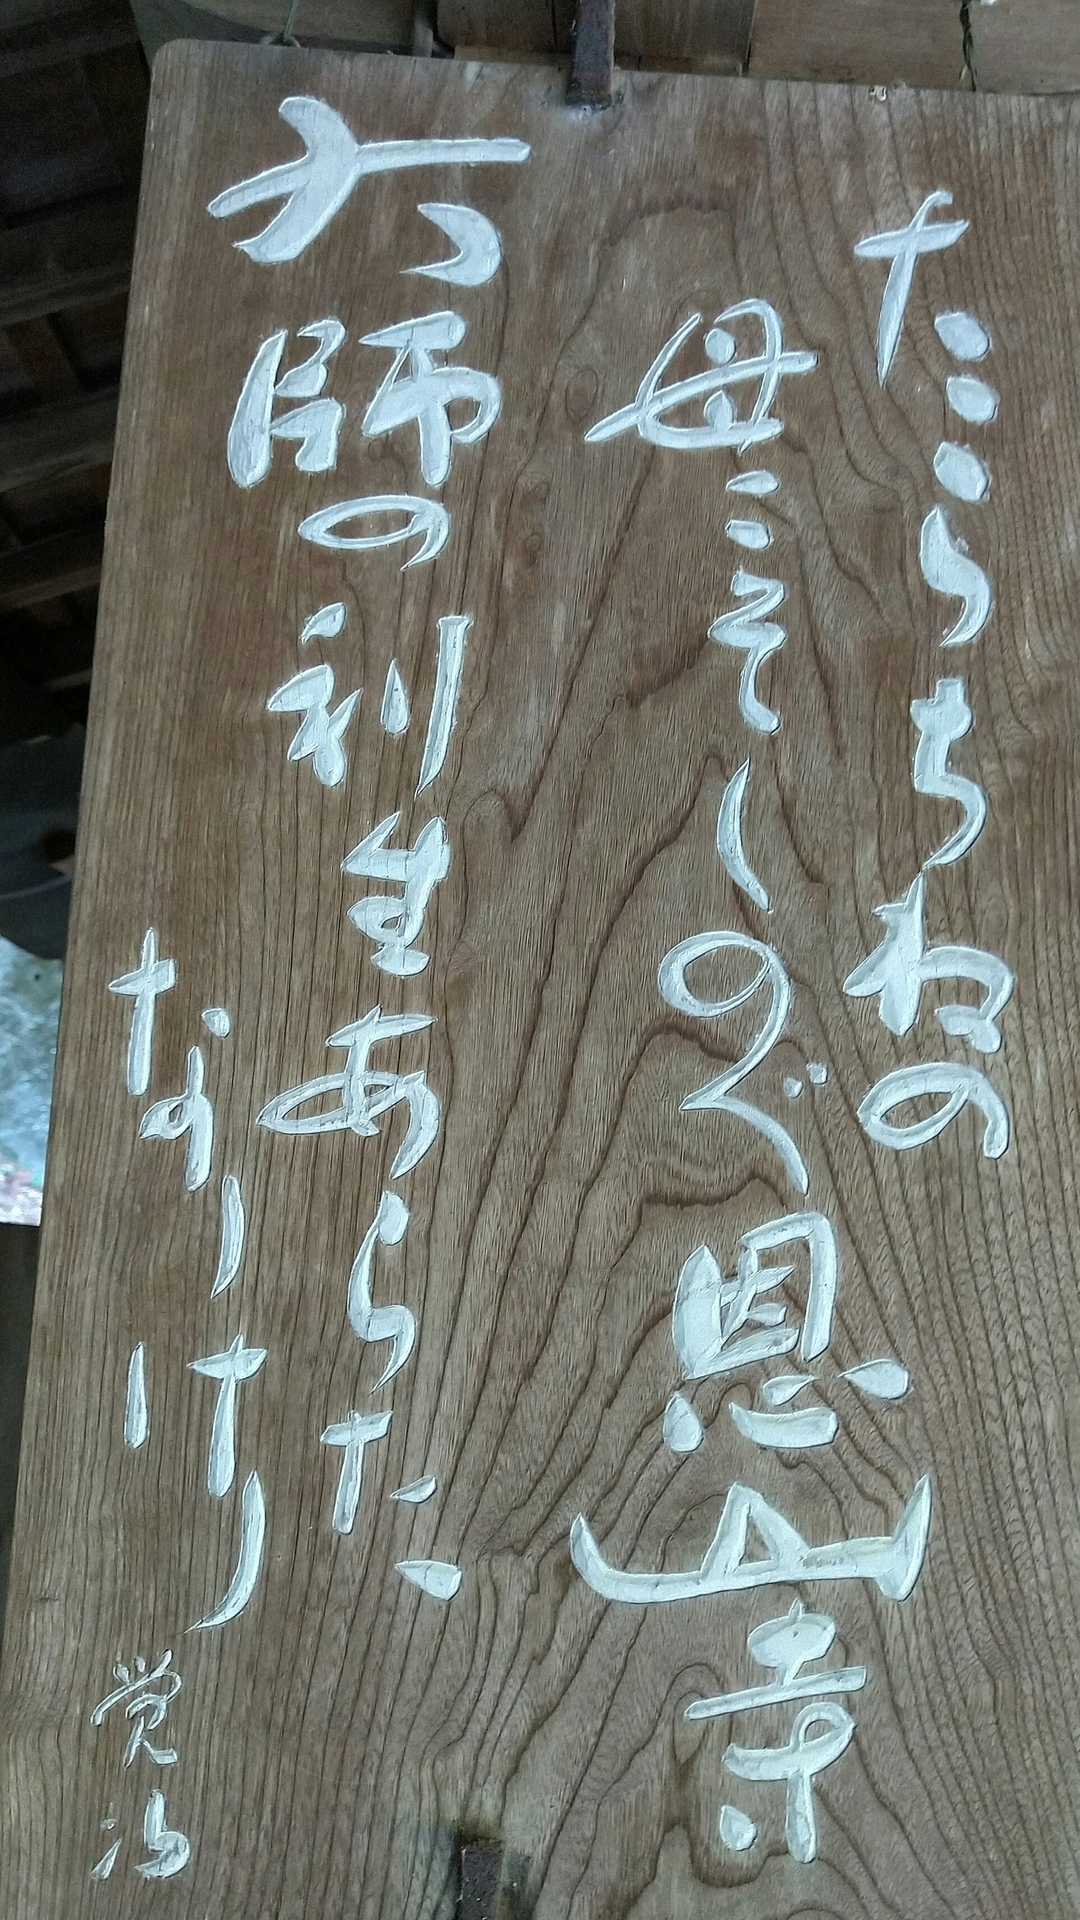 たらちねの
母こそしのぐ恩山寺
大師の利生あらた
なりけり
覚治